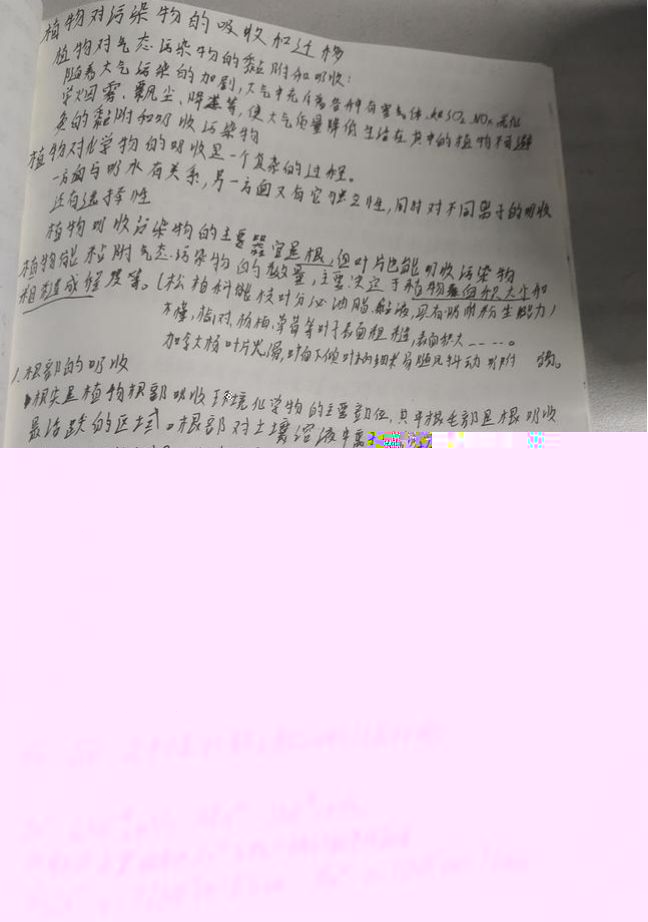 植物对污染物的吸收和迁移
植物对气态污染物的黏附和吸收:
随着大气污染的加剧,大气中充斥着各种有害气体.如SO₂.NOx
烟雾、飘尘、降尘等,使大气质量降低生活在其中的植物不可避
免的黏附和吸收污染物
植物对化学物的吸收是一个复杂的过程。
一方面与吸水有关系,另一方面又有它独立性,同时对不同离子的吸收
还有选择性
植物吸收污染物的主要器官是根,但叶片也能吸收污染物
植物能粘附气态污染物的数量,主要决定于植物表面积大小和
粗糙成程度等。(松柏科能枝叶分泌油脂.黏液,具有
杨梅,草莓等叶子表面粗糙,表面积大……。
加拿大杨叶片光滑,叶 下倾叶柄细长易随风抖动 附 。
1.根部的吸收
根尖是植物根部吸收环境化学物的主要部位,其中根毛部是根吸收
最活跃的区域。根部对土壤溶液中离